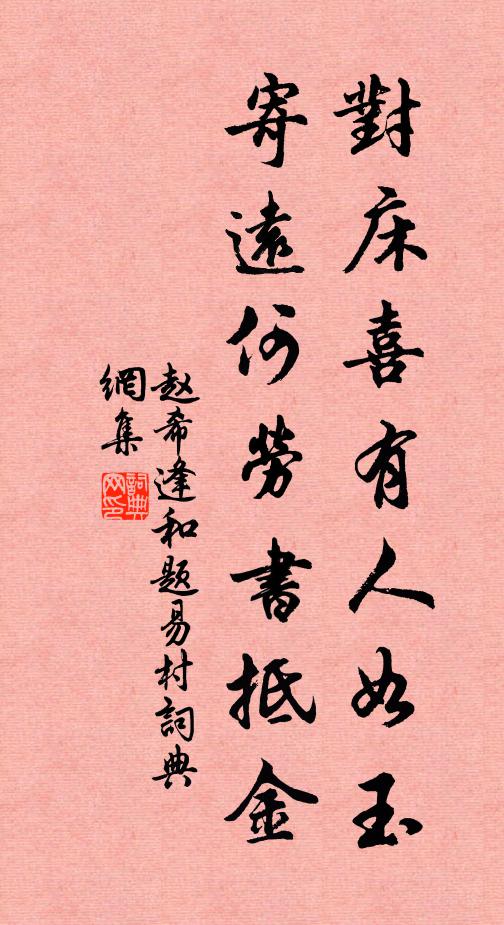 對床喜有人如玉
寄遠何勞書抵金
赵希逢和題易村詞典
網集
詞典
网印